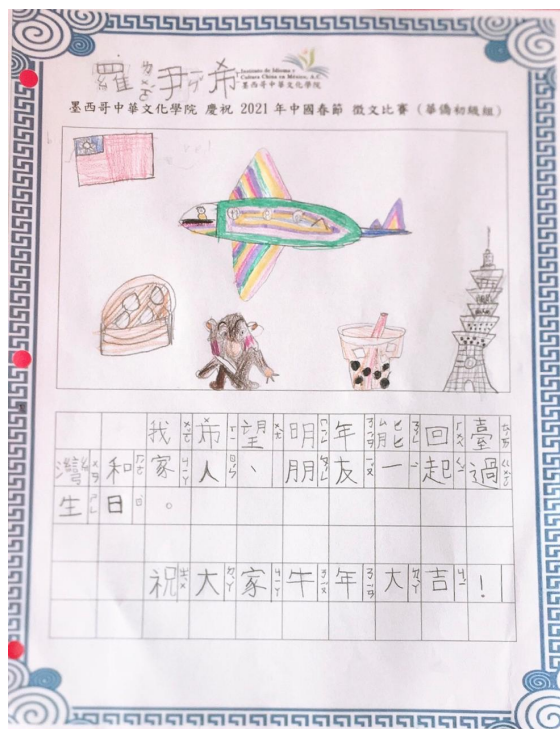 羅尹希
Instituto de Idioma y
Cultura China en México, A.C.
墨西哥中華文化學院
墨西哥中華文化學院 慶祝 2021 年中國春節 徵文比賽（華僑初級組）
我希望明年能回臺
灣和家人、朋友一起過
生日。
祝大家牛年大吉！